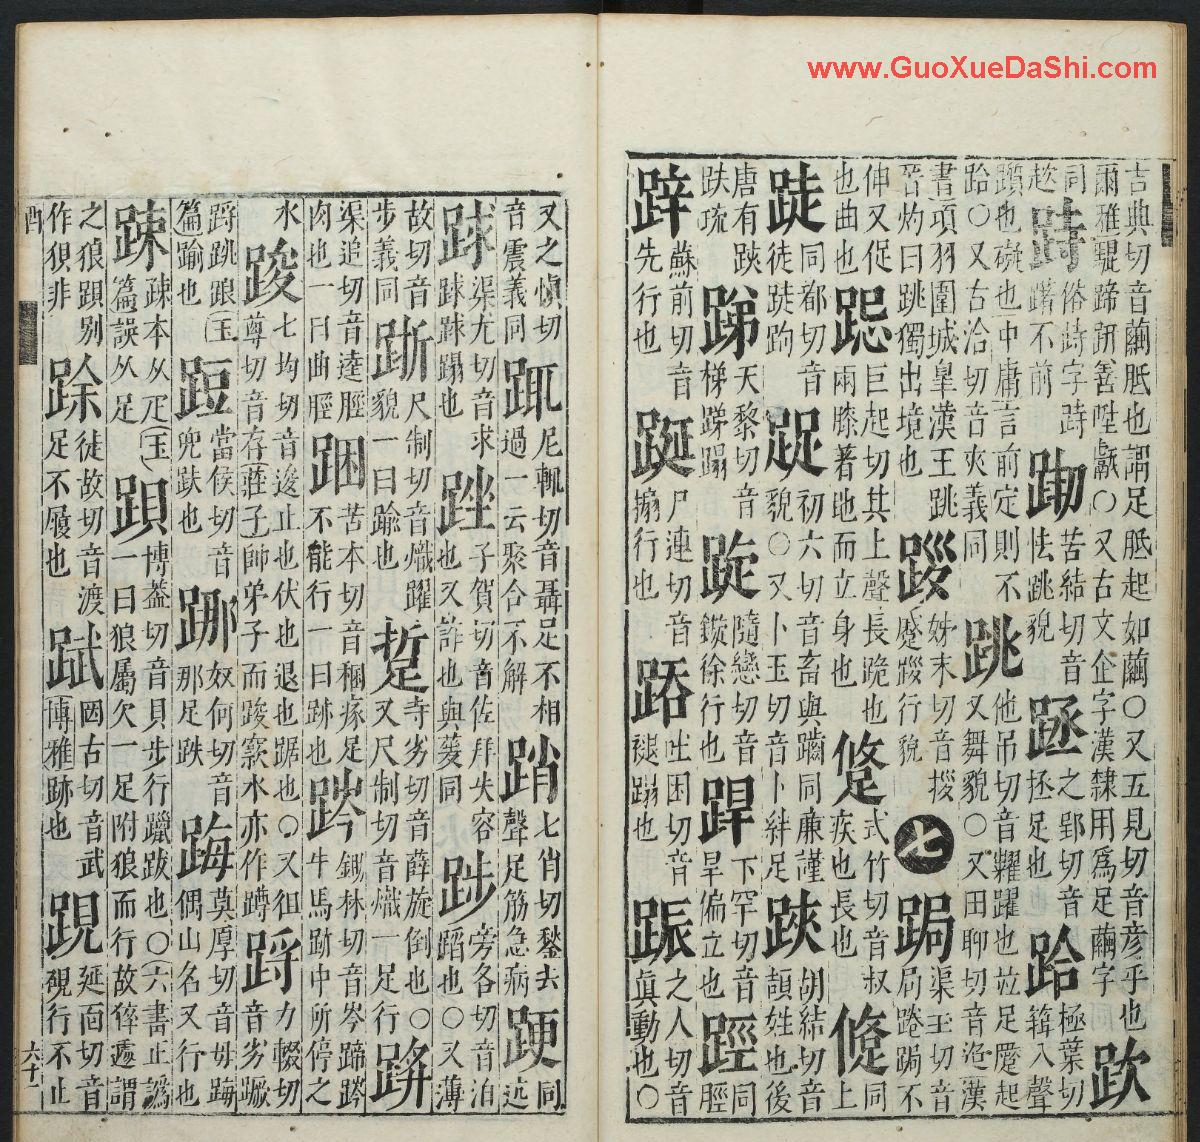 www.GuoXueDaShi.com
吉典切音繭胝也謂足胝起如繭〇又五見切音彦乎也
爾雅騉蹄趼善陞甗〇又古文企字漢隸用爲足繭字
趻
同俗踌字踌
躇不前
跏
苦結切音
怯跳貌
踁
之郢切音
拯足也
跲
極葉切
輯入聲
躓也礙也中庸言前定則不
跲〇又古洽切音夾義同
跳
他吊切音糶躍也竝足躩起
又舞貌〇又田聊切音迯漢
書項羽圍城臯漢王跳
晉灼曰跳獨出境也
姊末切音拶
躠行貌
七
跼
渠玉切音
局踡跼不
伸又促
也曲也
跽
巨起切其上聲長跪也
兩膝著地而立身也
跾
式竹切音叔
疾也長也
同
上
跿
同都切音
徒跿跔
捉
初六切音畜與躅同亷謹
貌〇又卜玉切音卜絆足
䟭
胡結切音
頡姓也後
唐有䟭
趺㲾
踶
天黎切音
梯踶蹋
踀
隨戀切音
鏇徐行也
趕
下罕切音
旱偏立也
踁
同
脛
跣
蘇前切音
先行也
跧
尸連切音
搧行也
𨁝
吐困切音
褪蹋也
踬
之人切音
眞動也〇
又之慎切
音震義同
踂
尼輒切音聶足不相
過一云聚合不解
踃
七肖切鍫去
聲足筋急病
同
远
踩
渠尤切音求
踩踩蹋也
䟶
子賀切音佐拜失容
也又詐也與蓌同
踄
旁各切音泊
蹈也〇又薄
故切音
步義同
踅
尺制切音熾躍
貌一曰踰也
踅
寺劣切音薛旋倒也〇
又尺制切音熾一足行
渠追切音逵脛
肉也一曰曲脛
踙
苦本切音稛瘃足
不能行一曰跡也
跨
鋤林切音岑蹄踤
牛馬跡中所停之
水
踆
七均切音逡止也伏也退也踞也〇又徂
尊切音存莊子師弟子而踆窾水亦作蹲
踤
力輟切
音劣蹶
蹘跳踉玉
篇踰也
踁
當侯切音
兜趺也
踋
奴何切音
那足趺
踇
莫厚切音母踇
偶山名又行也
踈
疎本从疋玉
篇誤从足
跟
博葢切音貝步行躐跋也〇六書正譌
一曰狼屬欠一足附狼而行故猝遽謂
之狼跟别
作狽非
踄
徒故切音渡
足不履也
跋
罔古切音武
博雅跡也
踀
延面切音
硯行不止
酉
六十